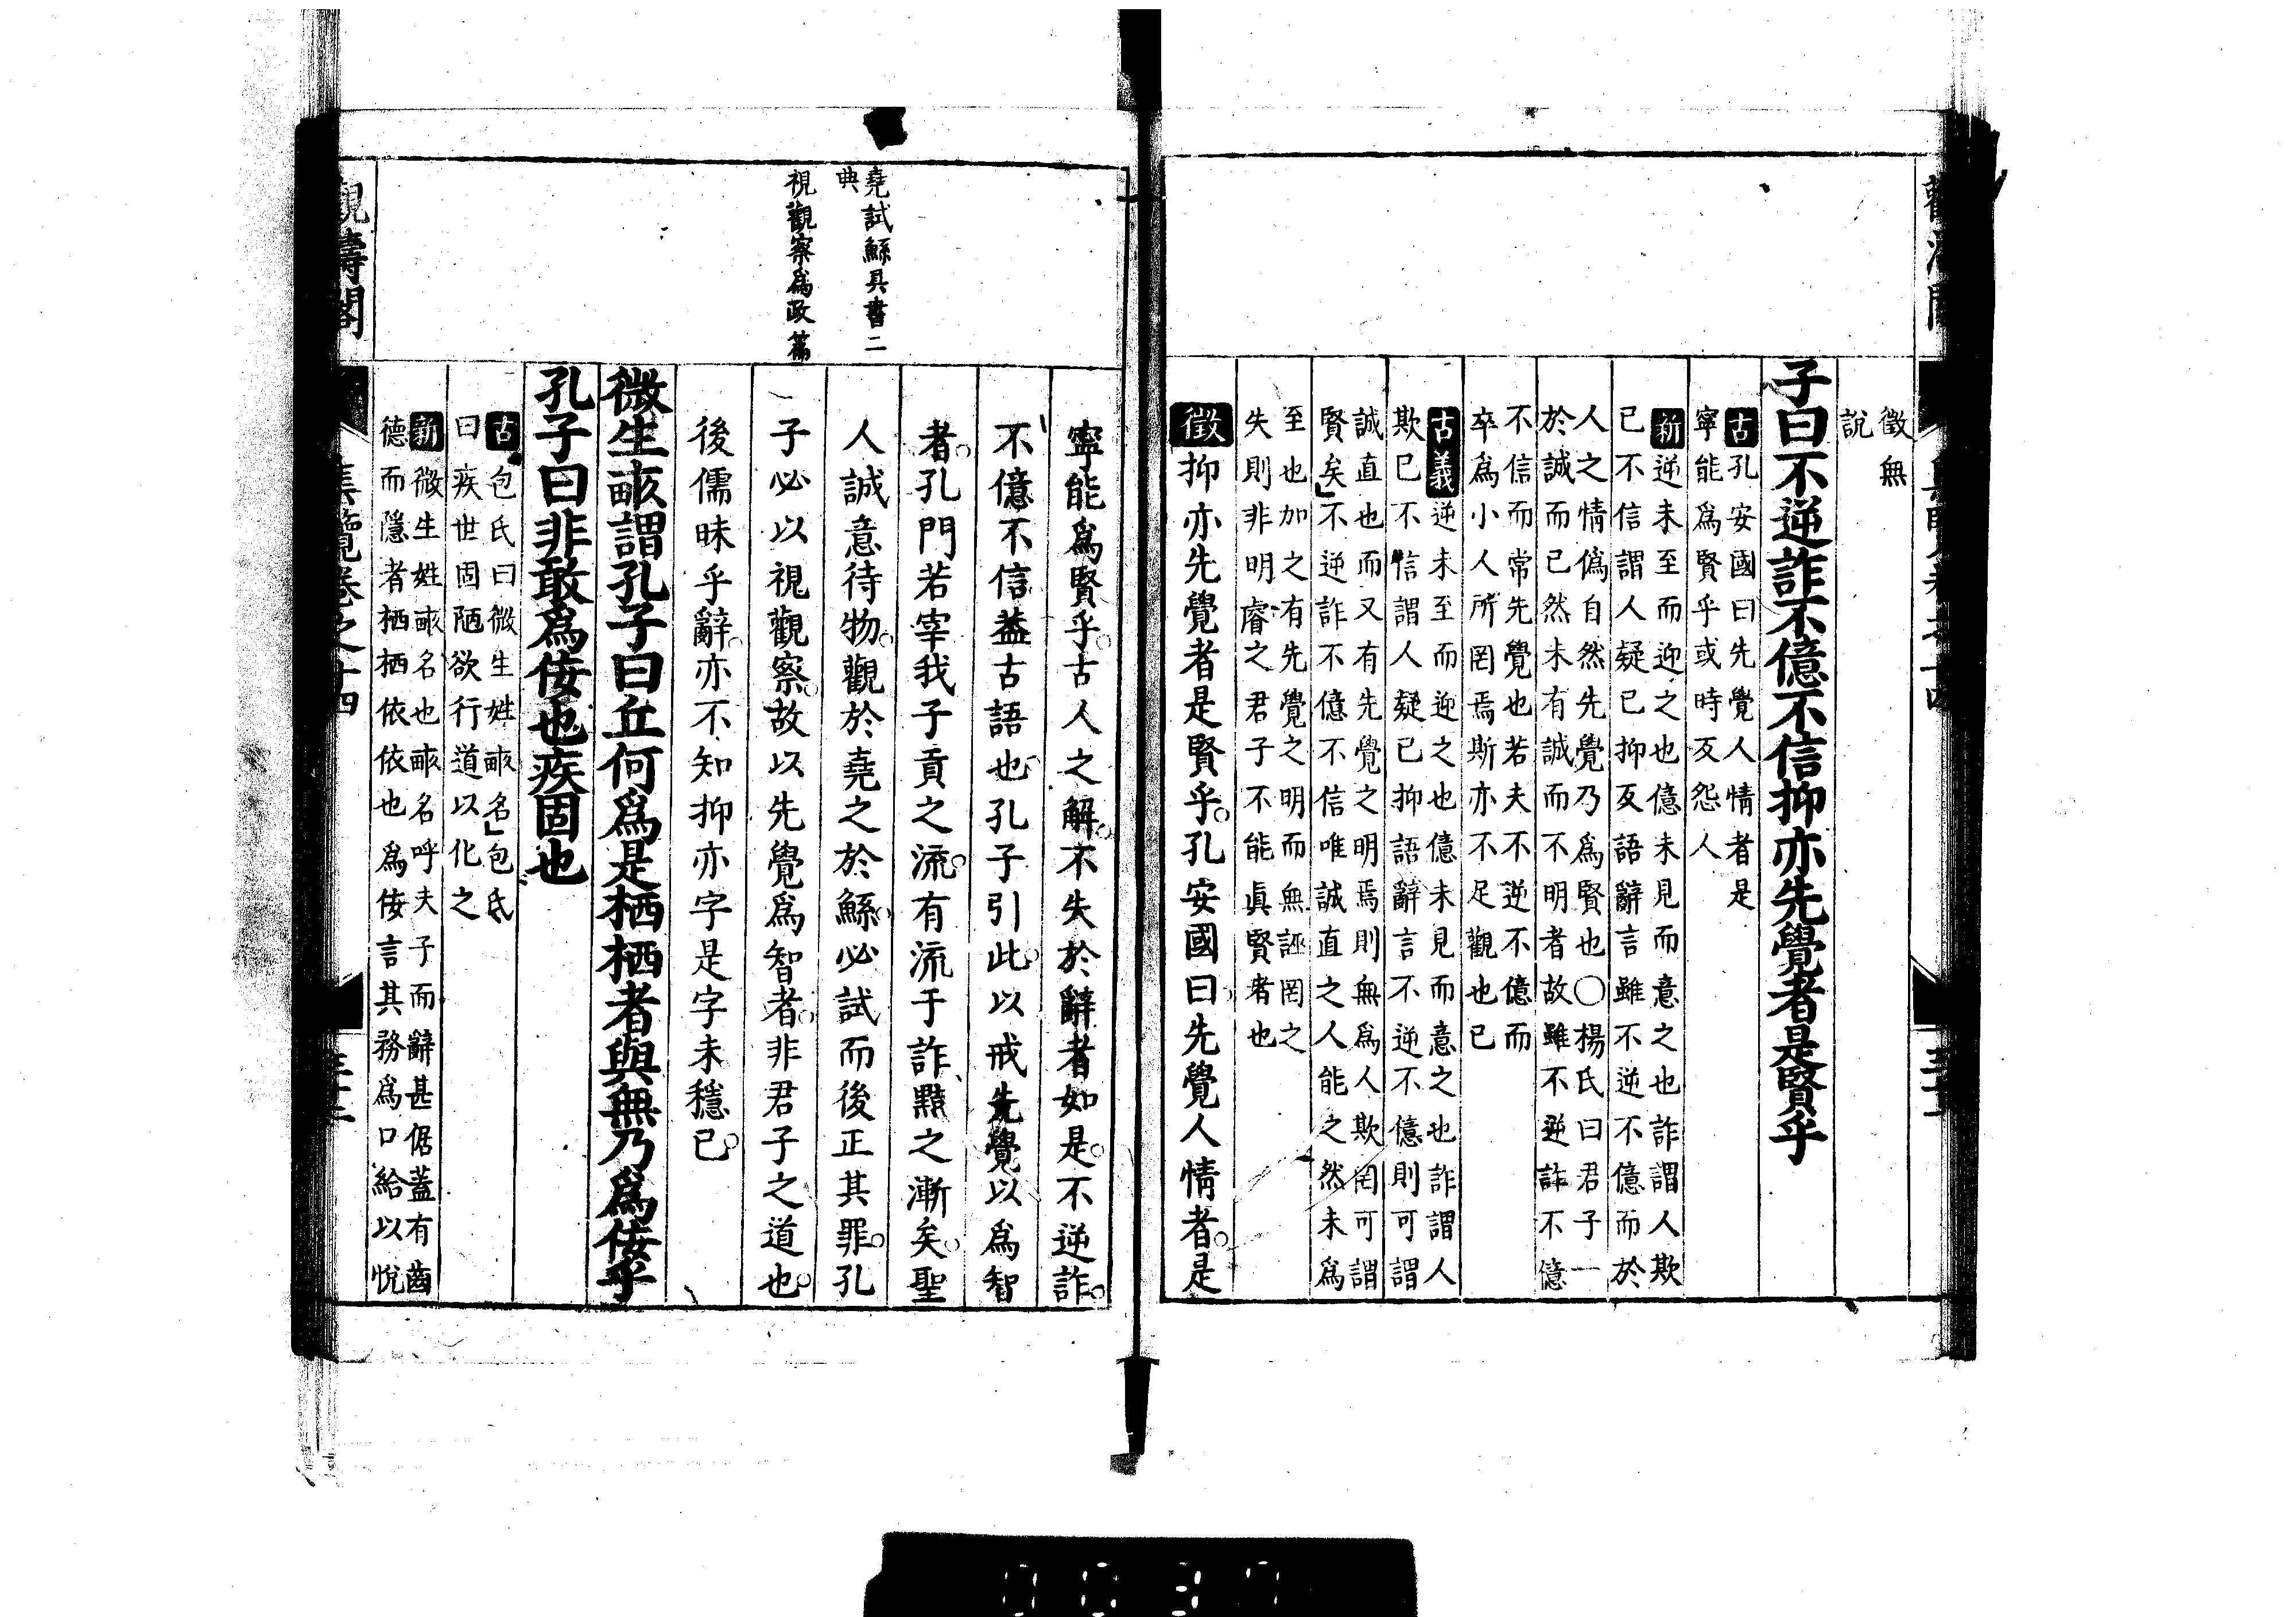 徵無
說
子曰不逆詐不億不信抑亦先覺者是賢乎
古孔安國曰先覺人情者是
寧能爲賢乎或時反怨人
新逆未至而迎之也億未見而意之也詐謂人欺
已不信謂人疑已抑反語辭言雖不逆不億而於
人之情僞自然先覺乃爲賢也〇楊氏曰君子一
於誠而已然未有誠而不明者故雖不逆詐不億
不信而常先覺也若夫不逆不億而
卒爲小人所罔焉斯亦不足觀也已
古義逆未至而迎之也億未見而意之也詐謂人
欺已不信謂人疑已抑語辭言不逆不億則可謂
誠直也而又有先覺之明焉則無爲人欺罔可謂
賢矣」不逆詐不億不信唯誠直之人能之然未爲
至也加之有先覺之明而無誣罔之
失則非明睿之君子不能眞賢者也
徵抑亦先覺者是賢乎。孔安國曰先覺人情者。是
寧能爲賢乎。古人之解。不失於辭者如是。不逆詐。
不億不信。蓋古語也。孔子引此。以戒先覺以爲智
者。孔門若宰我子貢之流。有流于詐黠之漸矣。聖
人誠意待物。觀於堯之於鯀。必試而後正其罪。孔
子必以視觀察。故以先覺爲智者。非君子之道也。
後儒昧乎辭。亦不知抑亦字是字未穩已。
微生畝謂孔子曰丘何爲是栖栖者與無乃爲佞乎
孔子曰非敢爲佞也疾固也
古包氏曰微生姓畝名」包氏
曰疾世固陋欲行道以化之
新微生姓畝名也畝名呼夫子而辭甚倨蓋有齒
德而隱者栖栖依依也爲佞言其務爲口給以悅
堯試鯀具書二
典
視觀察爲政篇
觀濤閣
集覽卷之十四